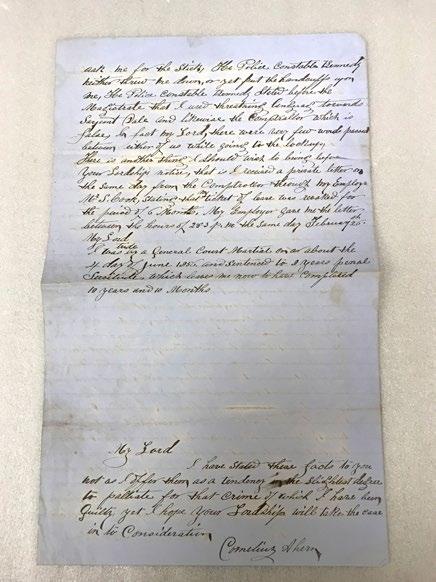 ask me for the Stick, The Police Constable Kennedy
neither threw me down, or yet put the handcuffs upon
me, The Police Constable Kennedy Stated before the
Magistrate that I used threatning language towards
Serjent Dale and likewise the Comptrallor which is
false, in fact my Lord, there were very few words passed
between either of us while going to the lockup,
There is another thing I should wish to bring before
Your Lordships notice, that is I received a private letter on
the same day from the Comptroller through my Employer
Mr S. Cook, Stating that ticket of leave was revoked for
the period of 6 Months, My Employer gave me the letter
between the hours of 2&3 p.m. the same day February 25th
My Lord
I was tried by a General Court Martial on or about the
day of June and Sentenced to years penal
Servitude, which leaves me now to have Completed
10 years and 10 Months
My Lord
I have Stated these facts to you
not as I offer them as a tendency in the Slightest degree
to palliate for that Crime of which I have been
Guilty, yet I hope Your Lordship will take the case
in to Consideration
Cornelius Ahern